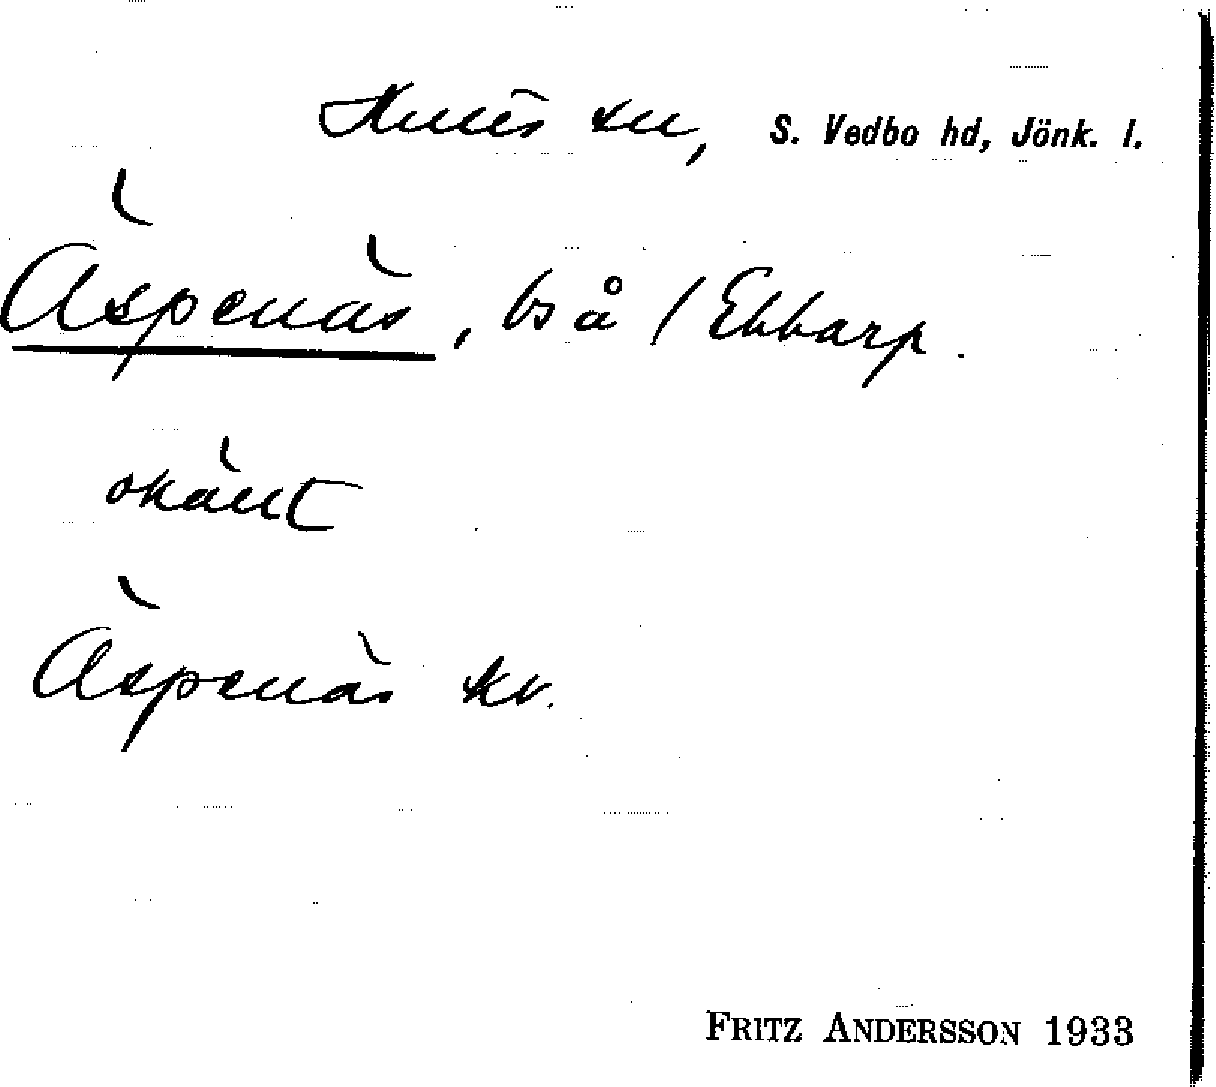 sn, S. Vedbo hd, Jönk. l.
Äspenäs, bs å / Ekkarp.
okänt
Äspenäs kv.
FRITZ ANDERSSON 1933